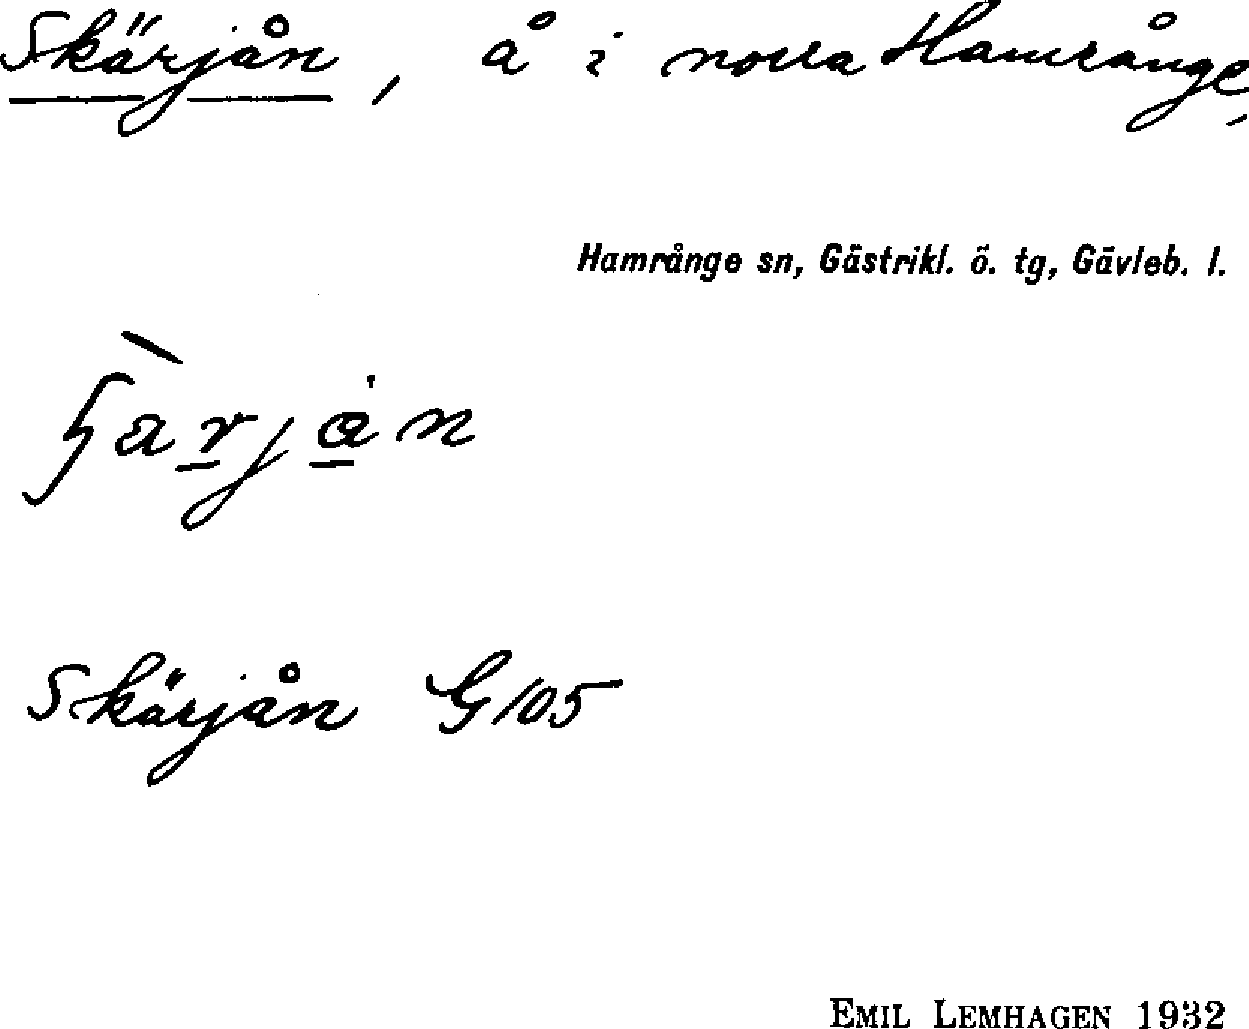 Skärjån, å i norra Hamrånge,
Hamrånge sn, Gästrikl. ö. tg, Gävleb. l.
Skärjån G 105
EMIL LEMHAGEN 1932